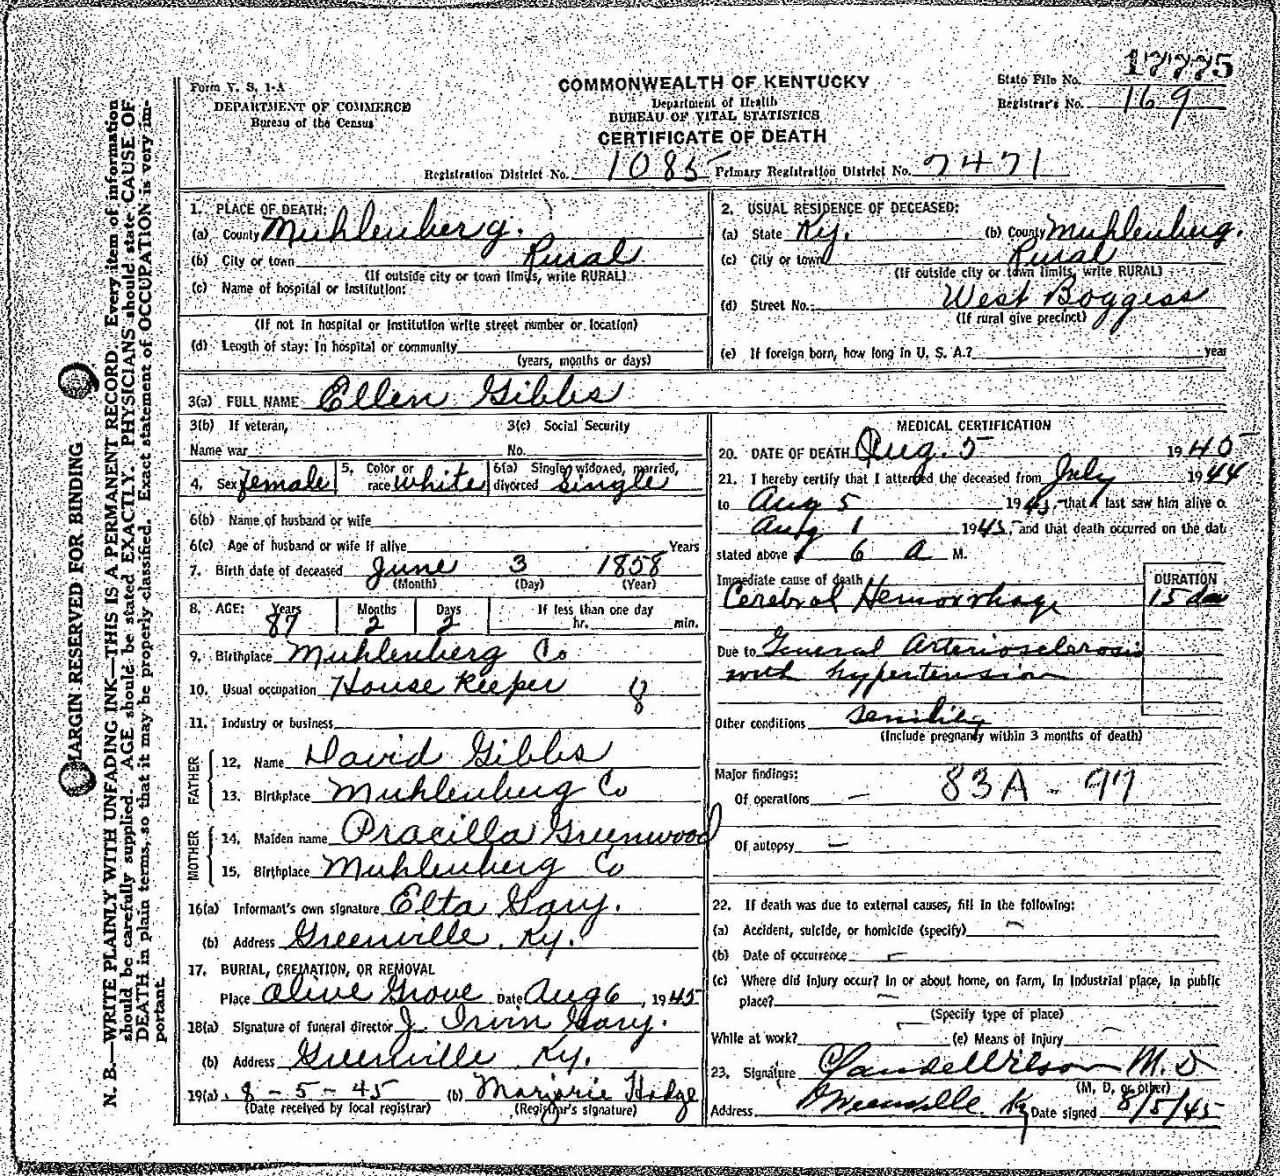 Form V. S. 1-A
DEPARTMENT OF COMMERCE
Bureau of the Census
COMMONWEALTH OF KENTUCKY
Department of Health
BUREAU OF VITAL STATISTICS
CERTIFICATE OF DEATH
State File No. 17775
Registrar's No. 169
Registration District No. 1085 Primary Registration District No. 7471
N. B.—WRITE PLAINLY WITH UNFADING INK—THIS IS A PERMANENT RECORD. Every item of information
should be carefully supplied. AGE should be stated EXACTLY. PHYSICIANS should state CAUSE OF
DEATH in plain terms, so that it may be properly classified. Exact statement of OCCUPATION is very im-
portant.
MARGIN RESERVED FOR BINDING
1. PLACE OF DEATH:
(a) County Muhlenberg.
(b) City or town Rural
(If outside city or town limits, write RURAL)
(c) Name of hospital or institution:
(If not in hospital or institution write street number or location)
(d) Length of stay: In hospital or community
(years, months or days)
2. USUAL RESIDENCE OF DECEASED:
(a) State Ky. (b) County Muhlenberg.
(c) City or town Rural
(If outside city or town limits, write RURAL)
(d) Street No. West Boggess
(If rural give precinct)
(e) If foreign born, how long in U. S. A.? year
3(a) FULL NAME Ellen Gibbs
3(b) If veteran, 3(c) Social Security
Name war No.
4. Sex female 5. Color or race white 6(a) Single, widowed, married, divorced single
6(b) Name of husband or wife
6(c) Age of husband or wife if alive Years
7. Birth date of deceased June 3 1858
(Month) (Day) (Year)
8. AGE: Years Months Days If less than one day
87 2 2 hr. min.
9. Birthplace Muhlenberg Co
10. Usual occupation House Keeper 8
11. Industry or business
FATHER
12. Name David Gibbs
13. Birthplace Muhlenberg Co
MOTHER
14. Maiden name Pracilla Greenwood
15. Birthplace Muhlenberg Co
16(a) Informant's own signature Elta Gary.
(b) Address Greenville, Ky.
17. BURIAL, CREMATION, OR REMOVAL
Place Olive Grove Date Aug 6, 1945
18(a) Signature of funeral director J. Irvin Gary.
(b) Address Greenville Ky.
19(a) 8-5-45 (b) Marjorie Hodge
(Date received by local registrar) (Registrar's signature)
MEDICAL CERTIFICATION
20. DATE OF DEATH Aug. 5 1945
21. I hereby certify that I attended the deceased from July 1944
to Aug 5 1945, that I last saw him alive o
Aug 1 1945, and that death occurred on the dat
stated above 6 A M.
Immediate cause of death DURATION
Cerebral Hemorrhage 15 da
Due to General Arteriosclerosis
with hypertension
Other conditions senility
(Include pregnancy within 3 months of death)
Major findings:
Of operations — 83A - 97
Of autopsy —
22. If death was due to external causes, fill in the following:
(a) Accident, suicide, or homicide (specify) —
(b) Date of occurrence —
(c) Where did injury occur? In or about home, on farm, in industrial place, in public
place? —
(Specify type of place)
While at work? — (e) Means of Injury —
23. Signature Claude Wilson M. D
(M, D, or other)
Address Greenville Ky Date signed 8/5/45